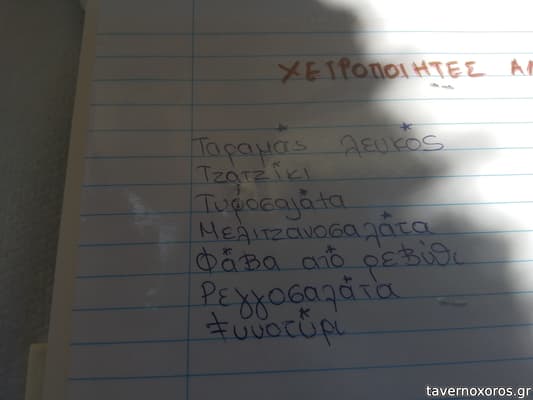 ΧΕΙΡΟΠΟΙΗΤΕΣ ΑΛ
Ταραμάς λευκός
Τζατζίκι
Τυροσαλάτα
Μελιτζανοσαλάτα
Φάβα από ρεβύθι
Ρεγγοσαλάτα
Ξυνοτύρι
tavernoxoros.gr